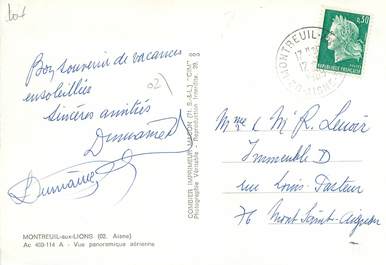 Bon souvenir de vacances
ensoleillées
Sincères amitiés
02
MONTREUIL-aux-LIONS (02. Aisne)
Ac 403-114 A - Vue panoramique aérienne
COMBIER IMPRIMEUR MACON (71. S.-&-L.) "CIM"
Photographie Véritable - Reproduction Interdite.
0,30
REPUBLIQUE FRANÇAISE
MONTREUIL
02 - AISNE
Mme & Mr R. Lenoir
Immeuble D
rue Louis Pasteur
76 Mont Saint-Aignan